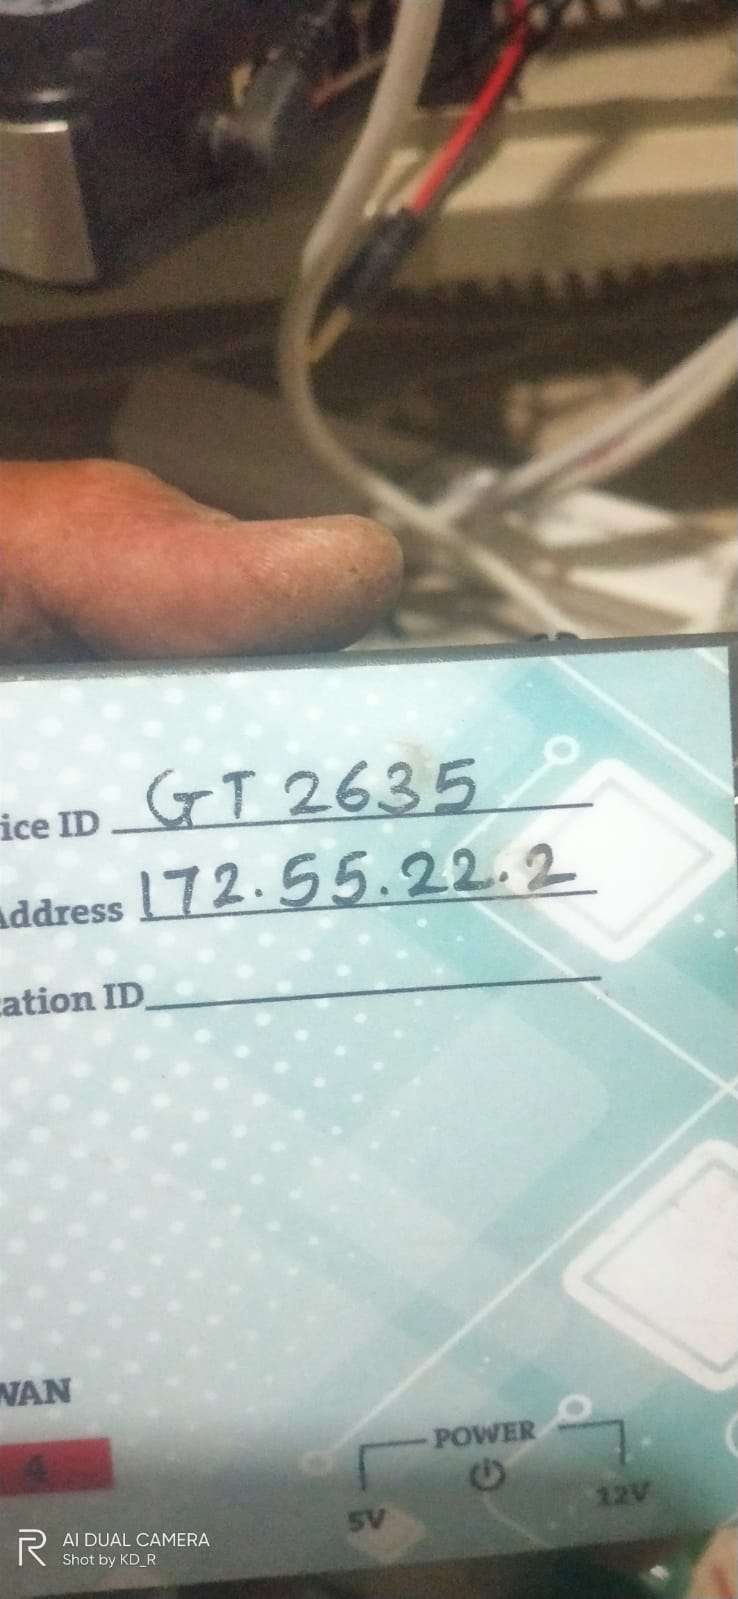 ice ID GT 2635
Address 172.55.22.2
ation ID
WAN
4
POWER
5V 12V
AI DUAL CAMERA
Shot by KD_R